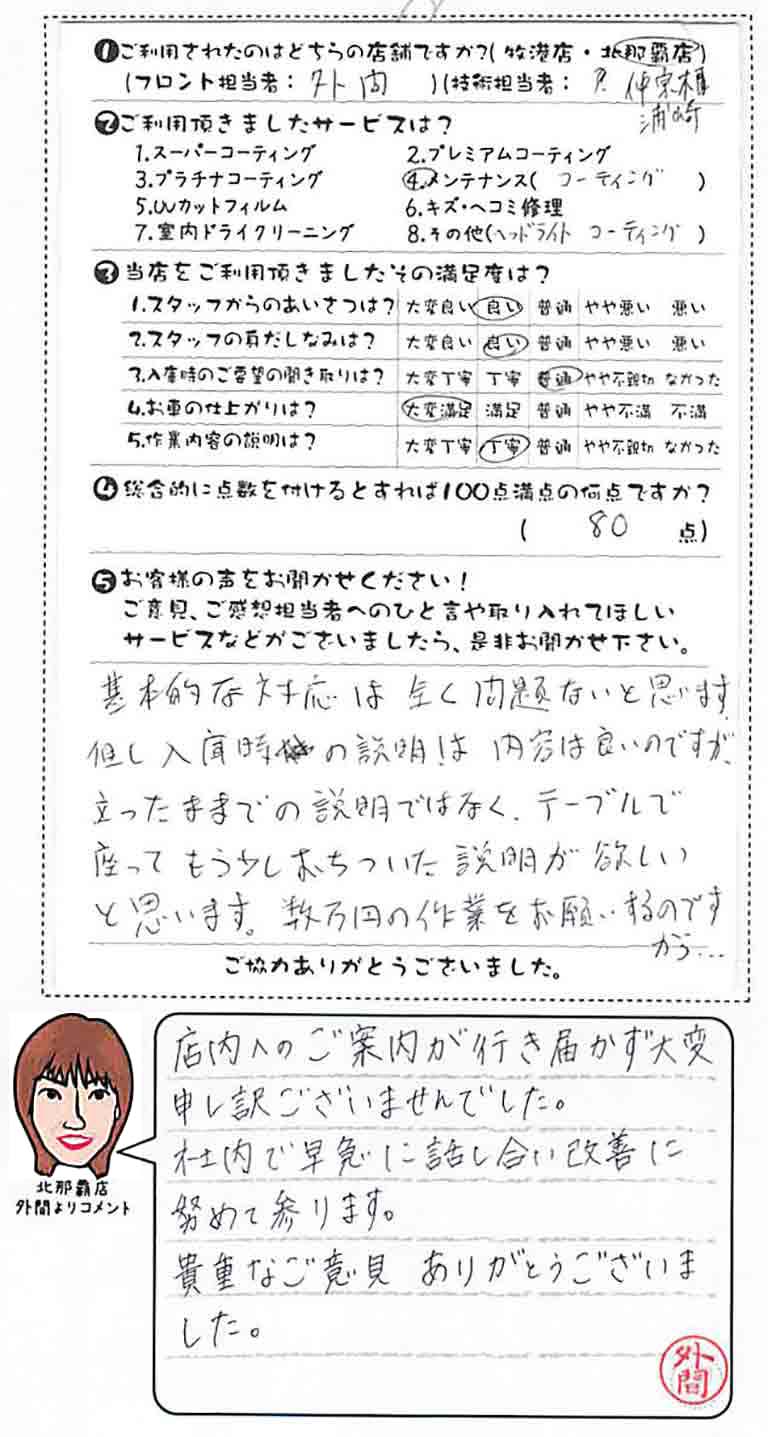 ❶ご利用されたのはどちらの店舗ですか?(牧港店・北那覇店)
(フロント担当者: 外間 )(技術担当者: P. 仲宗根
浦崎
❷ご利用頂きましたサービスは?
1.スーパーコーティング 2.プレミアムコーティング
3.プラチナコーティング 4.メンテナンス( コーティング )
5.UVカットフィルム 6.キズ・ヘコミ修理
7.室内ドライクリーニング 8.その他(ヘッドライト コーティング )
❸当店をご利用頂きましたその満足度は?
1.スタッフからのあいさつは? 大変良い 良い 普通 やや悪い 悪い
2.スタッフの身だしなみは? 大変良い 良い 普通 やや悪い 悪い
3.入庫時のご要望の聞き取りは? 大変丁寧 丁寧 普通 やや不親切 なかった
4.お車の仕上がりは? 大変満足 満足 普通 やや不満 不満
5.作業内容の説明は? 大変丁寧 丁寧 普通 やや不親切 なかった
❹総合的に点数を付けるとすれば100点満点の何点ですか?
( 80 点)
❺お客様の声をお聞かせください!
ご意見、ご感想担当者へのひと言や取り入れてほしい
サービスなどがございましたら、是非お聞かせ下さい。
基本的な対応は全く問題ないと思います。
但し入庫時の説明は内容は良いのですが、
立ったままでの説明ではなく、テーブルで
座ってもう少しおちついた説明が欲しい
と思います。数万円の作業をお願いするのです
から...
ご協力ありがとうございました。
店内へのご案内が行き届かず大変
申し訳ございませんでした。
社内で早急に話し合い改善に
努めて参ります。
貴重なご意見 ありがとうございま
した。
北那覇店
外間よりコメント
外間